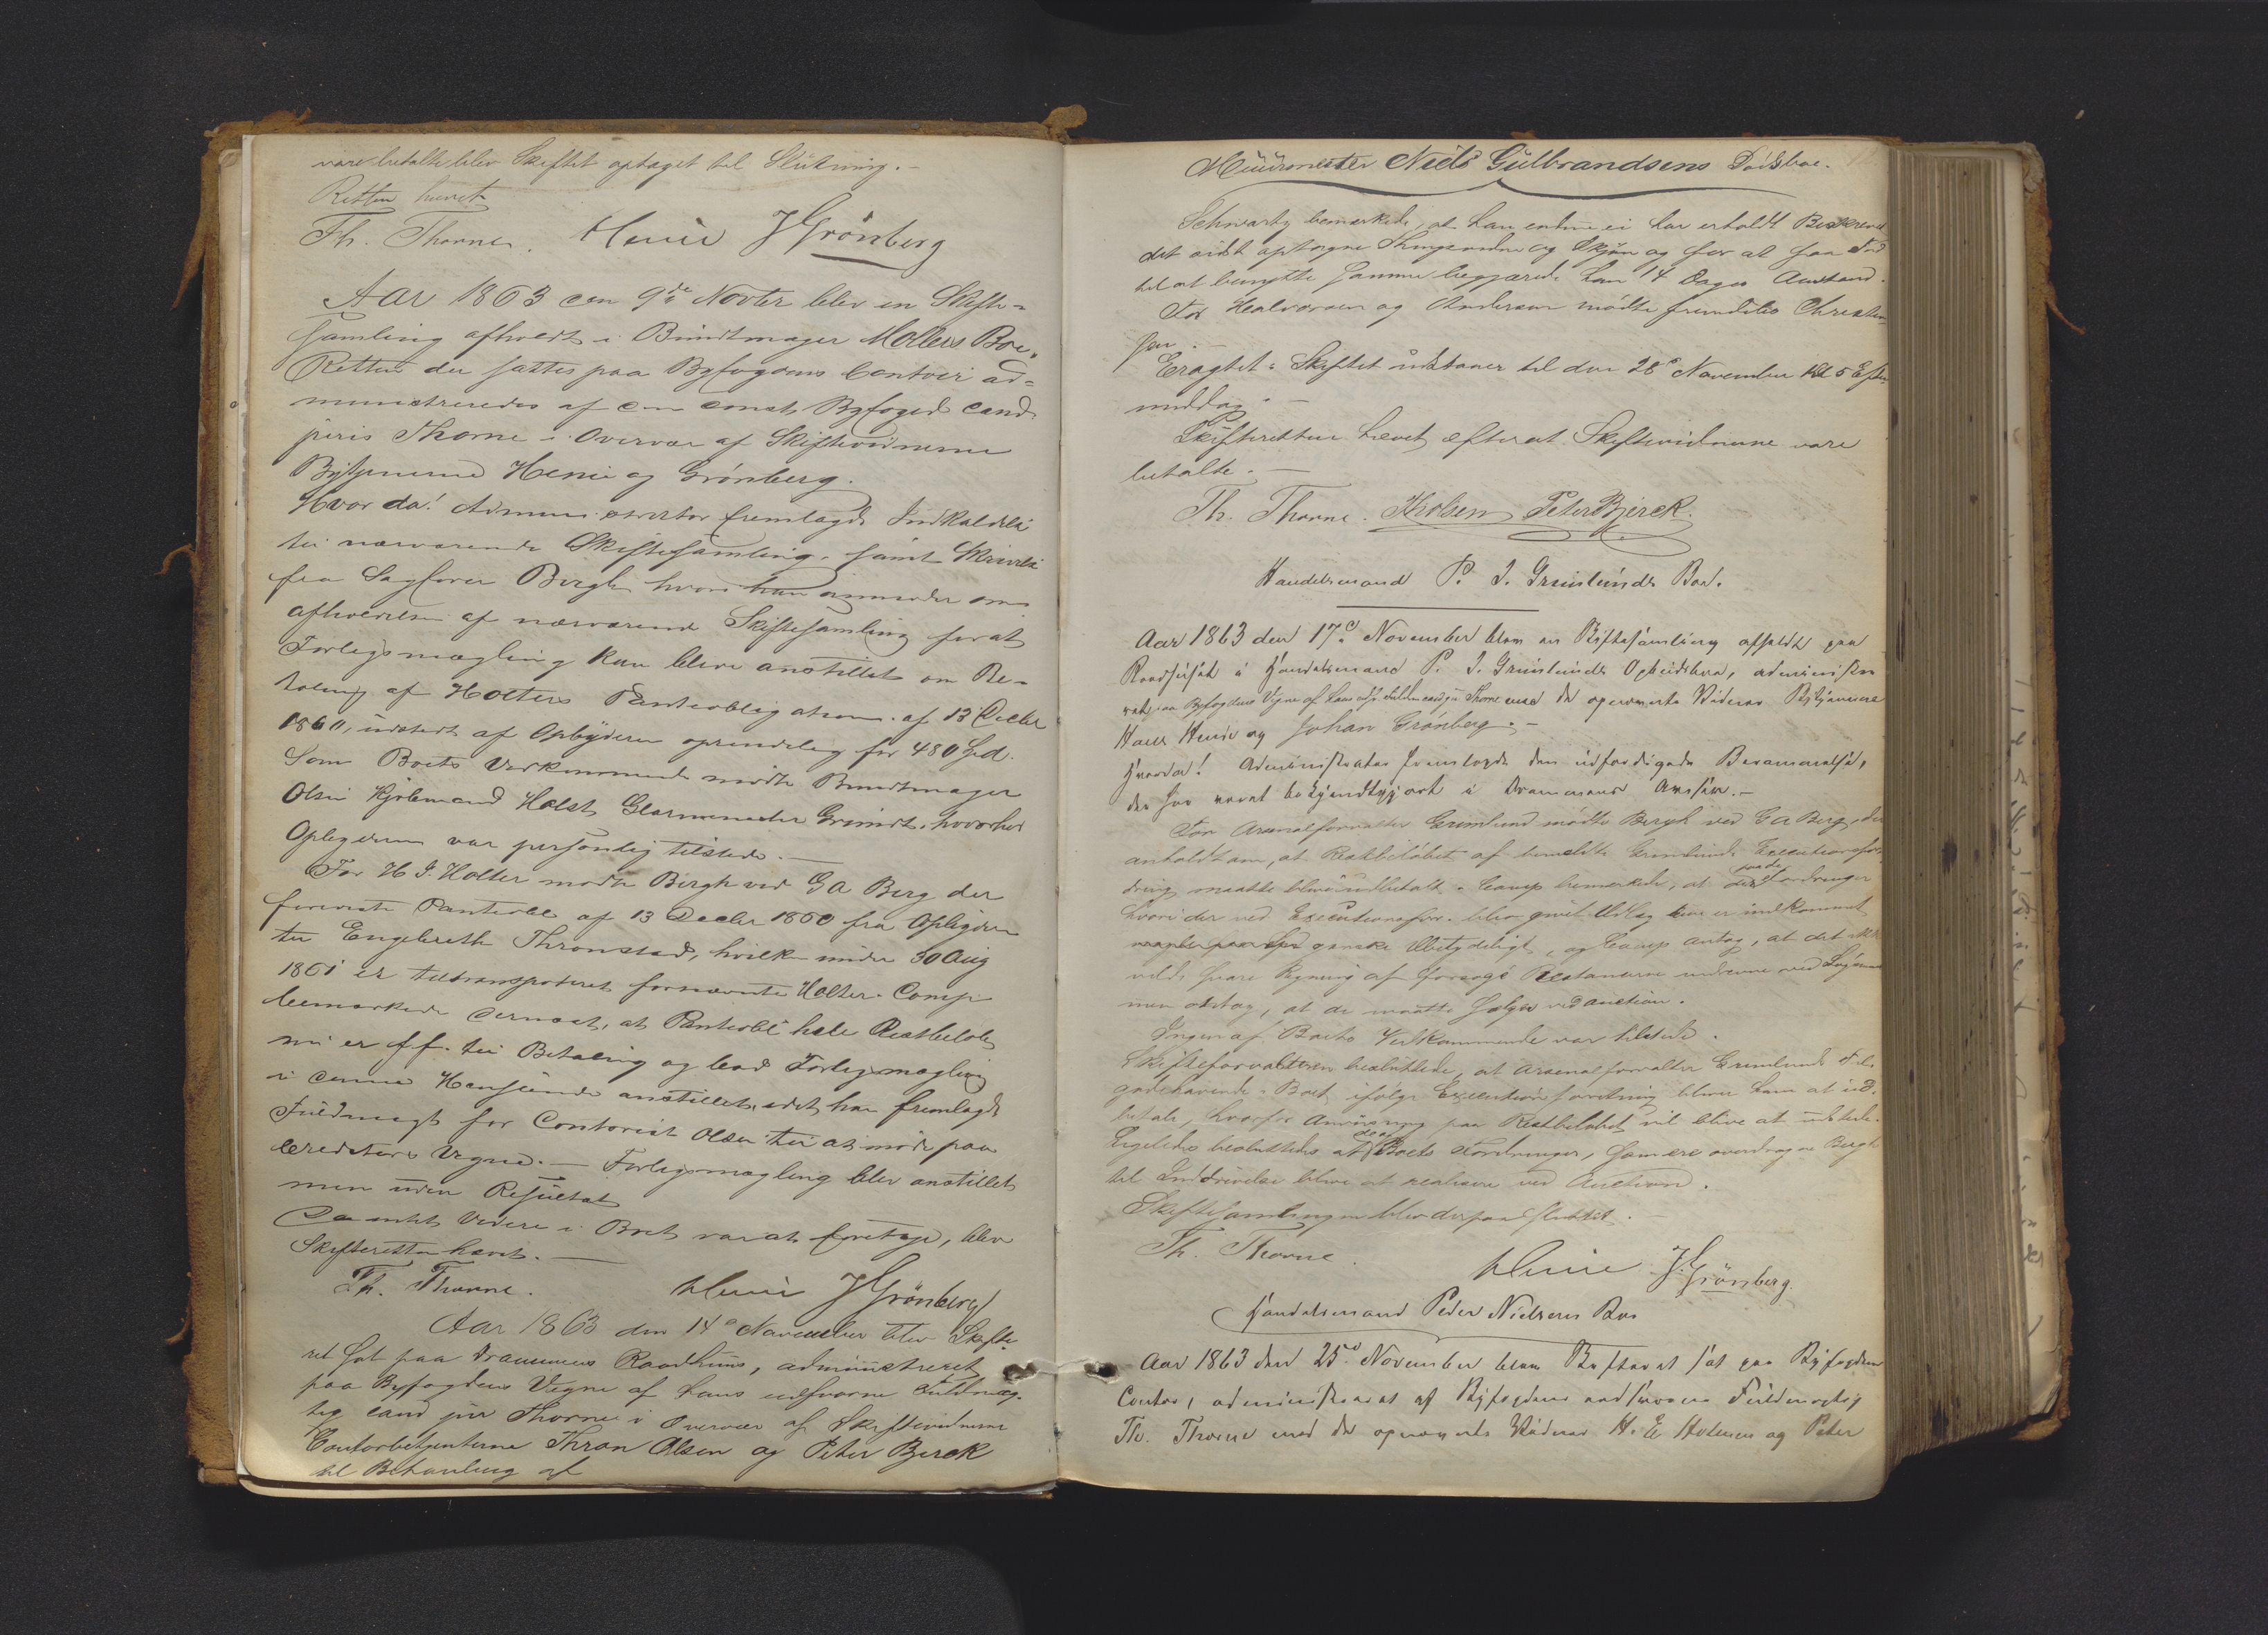 vare betalte blev Skiftet optaget til Slutning.-
Retten hævet
Th. Thorne. Henie J Grönberg
Aar 1863 den 9de Novbr blev en Skifte-
samling afholdt i Bundtmager Møllers Boe.
Retten der sattes paa Byfogdens Contoir ad-
ministreredes af den const. Byfoged cand.
juris Thorne i Overvær af Skiftevidnerne
Bytjenerne Henie og Grönberg.
Hvor da! Administrator fremlagde Indkaldelse
til nærværende Skiftesamling, samt Skrivelse
fra Sagfører Bergh hvori han anmoder om
afholdelse af nærværende Skiftesamling for at
Forligsmægling kan blive anstillet om Be-
taling af Holters Pantobligation af 13 Decbr
1860, udstedt af Opbyderen oprindelig for 480 Spd.
Som Boets Vedkommende mødte Bundtmager
Olsen Kjøbmand Holst, Glarmester Grimdt, hvorhos
Opbyderen var personlig tilstede.-
For H J. Holter mødte Bergh ved G A Berg der
foreviste Pantobl af 13 Decbr 1860 fra Opbyderen
til Engebreth Thronstad, hvilken under 30 Aug
1861 er transporteret fornævnte Holter. Comp.
bemærkede dernæst, at Pantobl hele Restbeløb
nu er ff. til Betaling og bad Forligsmægling
i denne Henseende anstillet, idet han fremlagde
Fuldmagt for Contorist Olsen til at møde paa
Creditors Vegne.- Forligsmægling blev anstillet
men uden Resultat
Da intet videre i Boet var at foretage, blev
Skifteretten hævet.-
Th. Thorne. Henie J Grönberg
Aar 1863 den 14de November blev Skifte-
ret sat paa Drammens Raadhuus, administreret
paa Byfogdens Vegne af hans edsvorne Fuldmæg-
tig cand jur Thorne i Overvær af Skiftevidnerne
Contorbetjenterne Thron Olsen og Peter Bjerck
til Behandling af
Muurmester Niels Gulbrandsens Dødsboe.
Schwartz bemærkede, at han endnu ei har erholdt Beskrevet
det sidst optagne Thingsvidne og Skjøn og for at faa Tid
til at benytte samme begjærede han 14 Dages Anstand.
For Halvorsen og Andersen mødte fremdeles Christen-
sen.-
Eragtet: Skiftet udstaaer til den 28de November Kl 5 Efter-
middag.-
Skifteretten hævet efterat Skiftevidnerne vare
betalte.-
Th. Thorne. Peter Bjerck.
Handelsmand P. J. Grimlunds Boe.
Aar 1863 den 17de November blev en Skiftesamling afholdt paa
Raadhuset i Handelsmand P. J. Grimlunds Opbudsboe, administre-
ret paa Byfogdens Vegne af hans edsv. Fuldm. cand jur Thorne med de opnævnte Vidner Bytjenerne
Hans Henie og Johan Grönberg.-
Hvorda! Administrator fremlagde den udfærdigede Berammelse,
der har været bekjendtgjort i Drammens Avis.-
For Arsenalforvalter Grimlund mødte Bergh ved G A Berg, der
anholdt om, at Restbeløbet af bemeldte Grimlunds Executionsfor-
dring maatte blive udbetalt. Comp bemærkede, at de Fordringer
hvori der ved Executionsforr. blev gjort Udlæg kun er indkommet
ganske Ubetydeligt, og Comp antog, at det ikke
vilde svare Regning at forsøge Restancerne inddrevne ved Lovsmaal
men antog, at de maatte sælges ved Auction.
Ingen af Boets Vedkommende var tilstede.
Skifteforvalteren besluttede, at Arsenalforvalter Grimlunds Til-
godehavende i Boet ifølge Executionsforretning bliver ham at ud-
betale, hvorfor Anvisning paa Restbeløbet vil blive at udstede.
Ligeledes besluttedes at de af Boets Fordringer, som ere overdragne Bergh
til Inddrivelse blive at realisere ved Auction.
Skiftesamlingen blev derpaa sluttet.-
Th. Thorne. Henie J. Grönberg.
Handelsmand Peder Nielsens Boe
Aar 1863 den 25de November blev Skifteret sat paa Byfogdens
Contor, administreret af Byfogdens edsvorne Fuldmægtig
Th. Thorne med de opnævnte Vidner H. E. Holmen og Peter